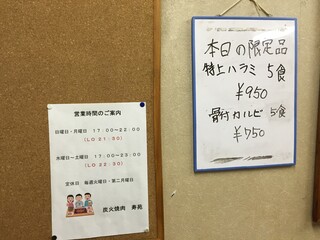 本日の限定品
特上ハラミ 5食
¥950
骨付カルビ 5食
¥750
営業時間のご案内
日曜日・月曜日 17:00～22:00
(LO 21:30)
水曜日～土曜日 17:00～23:00
(LO 22:30)
定休日 毎週火曜日・第二月曜日
炭火焼肉 寿苑